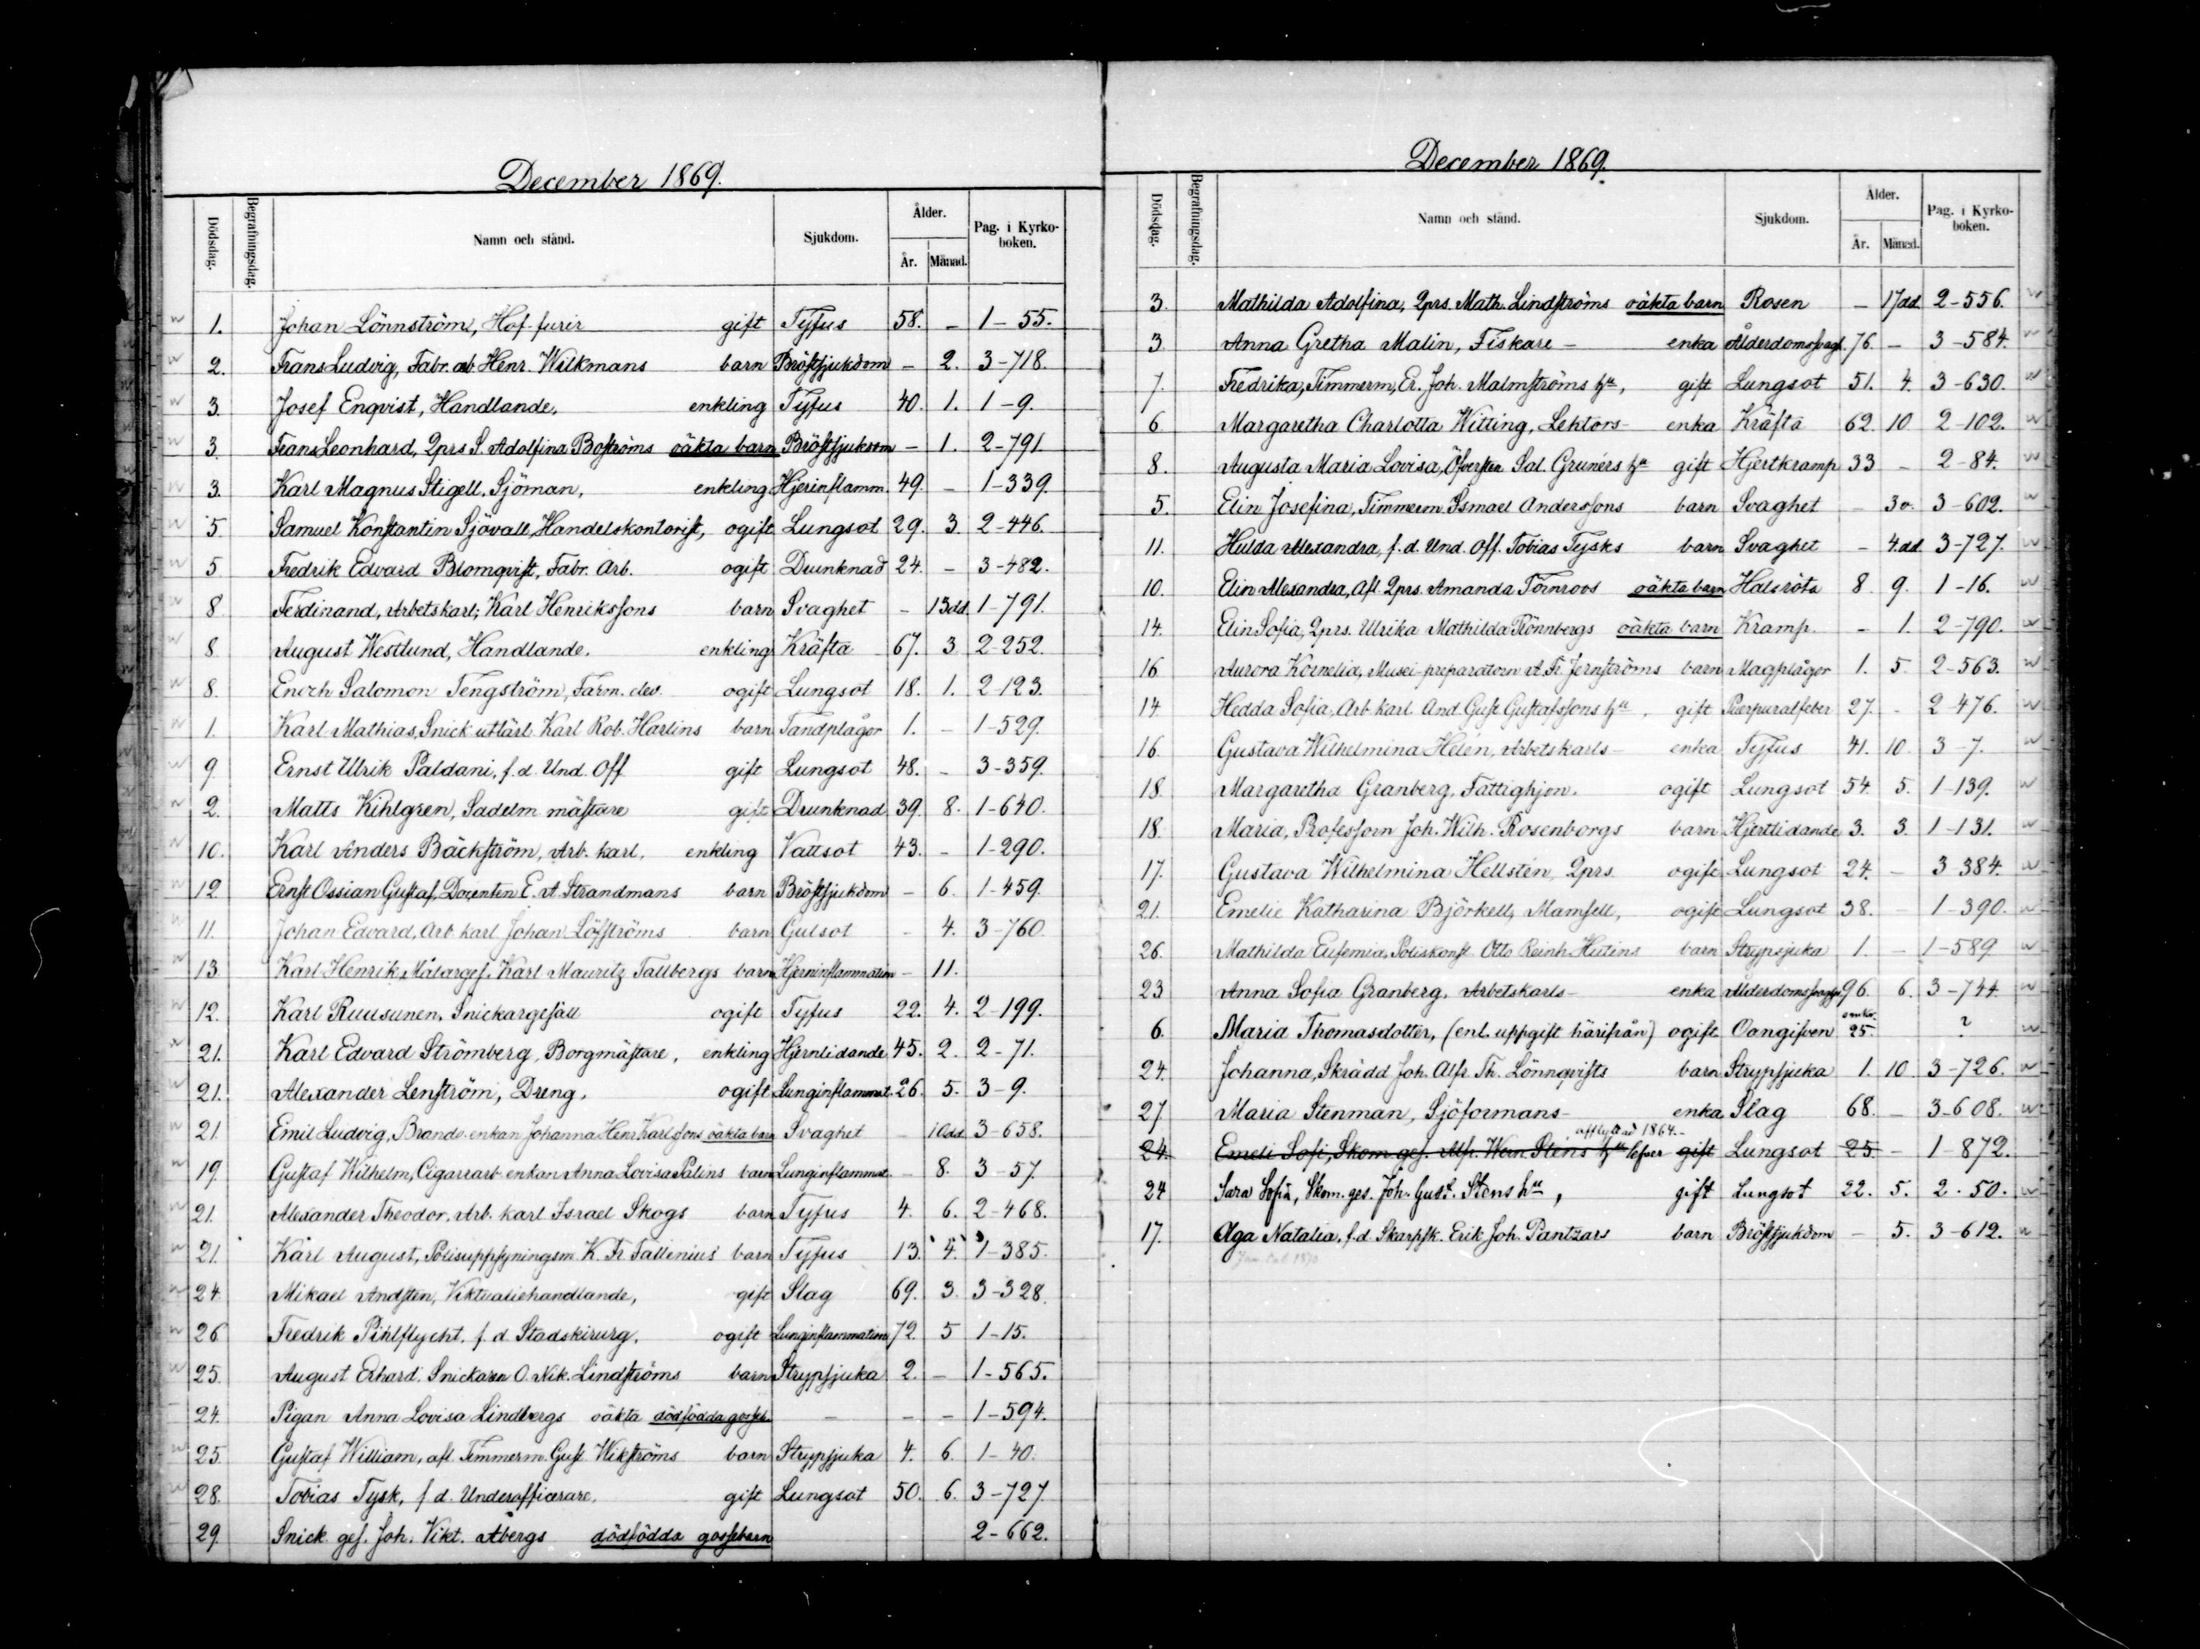 December 1869.
Dödsdag. Begrafningsdag. Namn och stånd. Sjukdom. Ålder. År. Månad. Pag. i Kyrko-boken.
1. Johan Lönnström, Hof-furir gift Tyfus 58. – 1–55.
2. Frans Ludvig, Fabr. arb. Henr. Wilkmans barn Bröstsjukdom – 2. 3–718.
3. Josef Enqvist, Handlande, enkling Tyfus 40. 1. 1–9.
3. Frans Leonhard, Qprs S. Adolfina Boströms oäkta barn Bröstsjukdom – 1. 2–791.
3. Karl Magnus Stigell, Sjöman, enkling Hjerinflamm. 49. – 1–339.
5. Samuel Konstantin Sjövall, Handelskontorist, ogift Lungsot 29. 3. 2–446.
5. Fredrik Edvard Blomqvist, Fabr. Arb. ogift Drunknad 24. – 3–482.
8. Ferdinand, Arbetskarl; Karl Henrikssons barn Svaghet – 13dd. 1–791.
8. August Westlund, Handlande. enkling Kräfta 67. 3. 2–252.
8. Enoch Salomon Tengström, Farm. elev. ogift Lungsot 18. 1. 2–123.
1. Karl Mathias, Snick. utlärl. Karl Rob. Harlins barn Tandplågor 1. – 1–529.
9. Ernst Ulrik Paldani, f.d. Und. Off gift Lungsot 48. – 3–359.
2. Matts Kihlgren, Sadelm. mästare gift Drunknad 39. 8. 1–640.
10. Karl Anders Bäckström, Arb. karl, enkling Vattsot 43. – 1–290.
12. Ernst Ossian Gustaf, Docenten E. A. Strandmans barn Bröstsjukdom – 6. 1–459.
11. Johan Edvard, Arb. karl Johan Löfströms barn Gulsot – 4. 3–760.
13. Karl Henrik, Målargef. Karl Mauritz Tallbergs barn Hjerninflammation – 11.
12. Karl Ruusunen, Snickargesäll ogift Tyfus 22. 4. 2–199.
21. Karl Edvard Strömberg, Borgmästare, enkling Hjernlidande 45. 2. 2–71.
21. Alexander Lenström, Dreng, ogift Lunginflammat. 26. 5. 3–9.
21. Emil Ludvig, Brandv. enkan Johanna Henr. Karlssons oäkta barn Svaghet – 10dd. 3–658.
19. Gustaf Wilhelm, Cigarrarb. enkan Anna Lovisa Palins barn Lunginflammat. – 8. 3–57.
21. Alexander Theodor, Arb. karl Israel Skogs barn Tyfus 4. 6. 2–468.
21. Karl August, Polisuppsyningsm. K. Fr. Tallinius' barn Tyfus 13. 4. 1–385.
24. Mikael Andsten, Viktualiehandlande, gift Slag 69. 3. 3–328.
26. Fredrik Pihlflycht, f.d. Stadskirurg, ogift Lunginflammation 72. 5 1–15.
25. August Erhard, Snickaren O. Nik. Lindströms barn Strypsjuka 2. – 1–565.
24. Pigan Anna Lovisa Lindbergs oäkta dödfödda gosseb. – – – 1–594.
25. Gustaf William, afl. Timmerm. Gust. Wikströms barn Strypsjuka 4. 6. 1–40.
28. Tobias Tysk, f.d. Underofficerare, gift Lungsot 50. 6. 3–727.
29. Snick. gef. Joh. Vikt. Åbergs dödfödda gossebarn 2–662.
December 1869.
Dödsdag. Begrafningsdag. Namn och stånd. Sjukdom. Ålder. År. Månad. Pag. i Kyrko-boken.
3. Mathilda Adolfina, Qprs. Math. Lindströms oäkta barn Rosen – 17dd. 2–556.
3. Anna Gretha Malin, Fiskare – enka Ålderdomssvagh. 76. – 3–584.
7. Fredrika, Timmerm. Er. Joh. Malmströms hu, gift Lungsot 51. 4. 3–630.
6. Margaretha Charlotta Witting, Lektors– enka Kräfta 62. 10. 2–102.
8. Augusta Maria Lovisa, Öfversten Sal. Grunérs hu gift Hjertkramp 33 – 2–84.
5. Elin Josefina, Timmerm. Ismael Anderssons barn Svaghet – 3v. 3–602.
11. Hulda Alexandra, f.d. Und. Off. Tobias Tysks barn Svaghet – 4.dd. 3–727.
10. Elin Alexandra, Afl. Qprs. Amanda Törnroos oäkta barn Halsröta 8. 9. 1–16.
14. Elin Sofia, Qprs. Ulrika Mathilda Rönnbergs oäkta barn Kramp. – 1. 2–790.
16. Aurora Kornelia, Musei-preparatorn A. Fr. Jernströms barn Magplågor 1. 5. 2–563.
14. Hedda Sofia, Arb. karl. And. Gust. Gustafssons hu, gift Puerpuralfeber 27. – 2–476.
16. Gustava Wilhelmina Helén, Arbetskarls– enka Tyfus 41. 10. 3–7.
18. Margaretha Granberg, Fattighjon. ogift Lungsot 54. 5. 1–139.
18. Maria, Professorn Joh. Wilh. Rosenborgs barn Hjertlidande 3. 3. 1–131.
17. Gustava Wilhelmina Hellstén, Qprs. ogift Lungsot 24. – 3–384.
21. Emelie Katharina Björkell, Mamsell, ogift Lungsot 38. – 1–390.
26. Mathilda Eufemia, Poliskonst. Otto Reinh. Hutins barn Strypsjuka 1. – 1–589
23 Anna Sofia Granberg, Arbetskarls– enka Ålderdomssvaghet 96. 6. 3–744.
6. Maria Thomasdotter, (enl. uppgift härifrån) ogift Oangifven omkr. 25. ?
24. Johanna, Skrädd. Joh. Alfr. Th. Lönnqvists barn Strypsjuka 1. 10. 3–726.
27 Maria Stenman, Sjöformans– enka Slag 68. – 3–608.
afflyttad 1864.
24. Emeli Sofi, Skom. gef. Alfr. Wern. Stens hu lefver gift Lungsot 25. – 1–872.
24 Sara Sofia, Skom. ges. Joh. Gust. Stens hu, gift Lungsot 22. 5. 2–50.
17. Olga Natalia, f.d. Skarpsk. Erik Joh. Pantzars barn Bröstsjukdom – 5. 3–612.